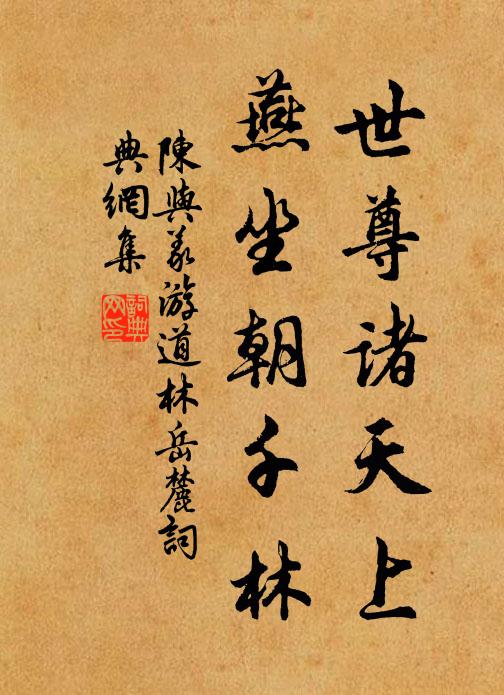 世尊諸天上
燕坐朝千林
陳與義游道林岳麓詞
典網集
詞典網印